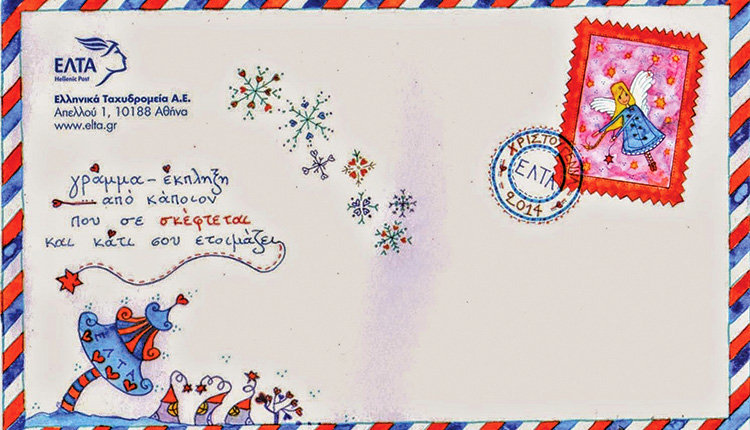 ΕΛΤΑ
Hellenic Post
Ελληνικά Ταχυδρομεία Α.Ε.
Απελλού 1, 10188 Αθήνα
www.elta.gr
γράμμα-έκπληξη
από κάποιον
που σε σκέφτεται
και κάτι σου ετοιμάζει
ΧΡΙΣΤΟΥΓΕΝΝΑ
ΕΛΤΑ
2014
ΕΛΤΑ